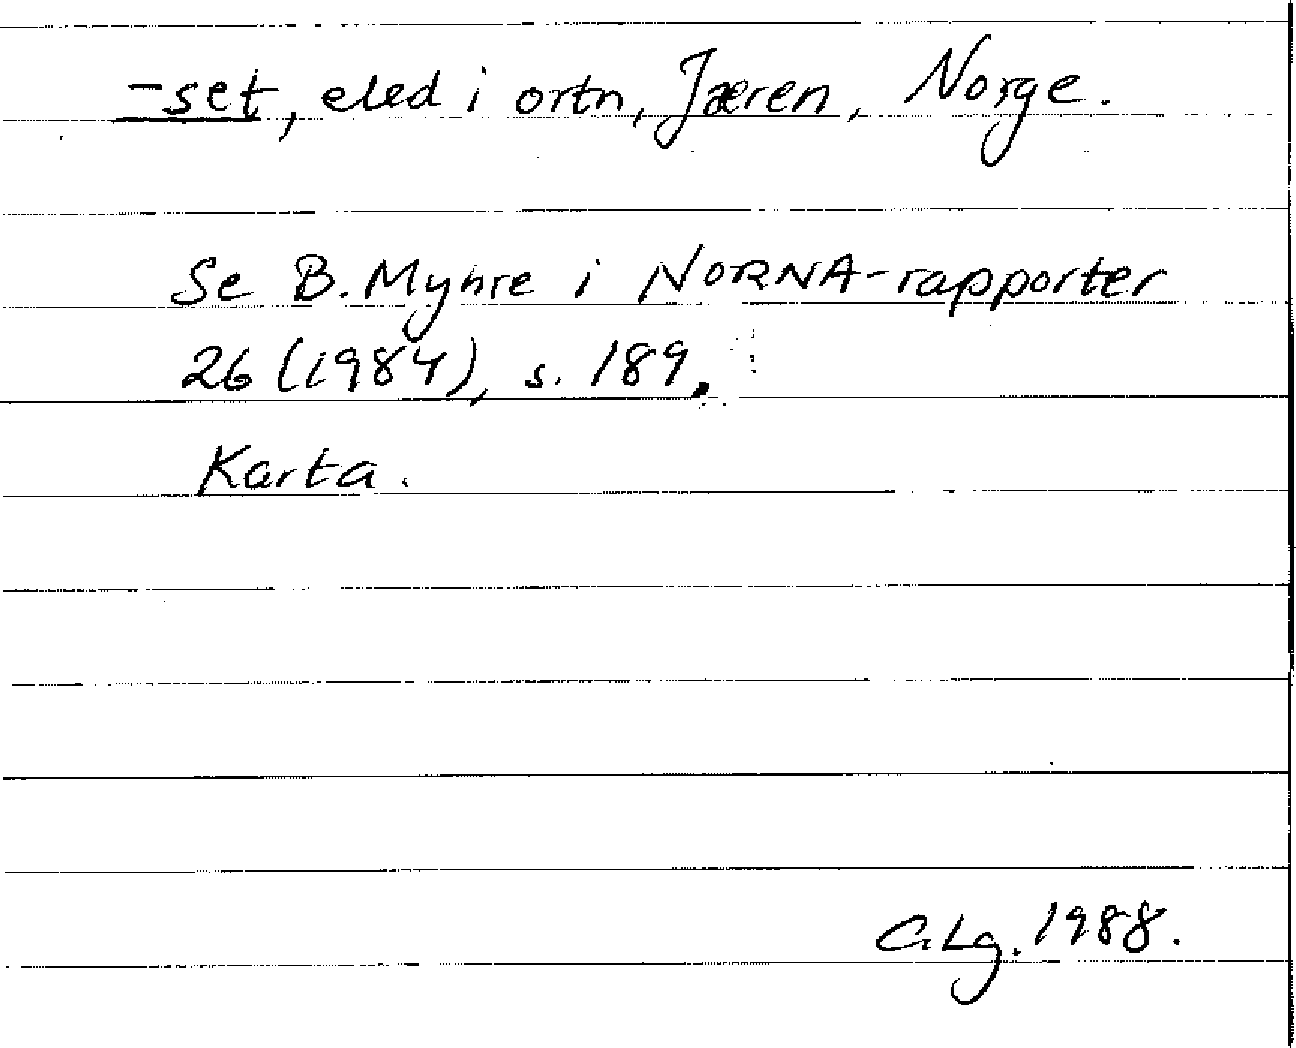 -set, eled i ortn, Jæren, Norge.
Se B. Myhre i NORNA-rapporter
26 (1984), s. 189.
Karta.
C.Lg. 1988.